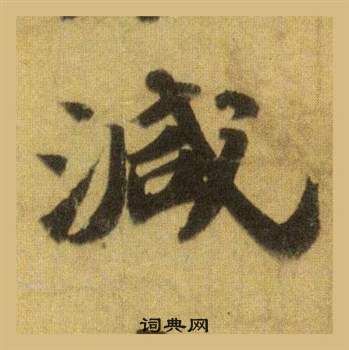 減
词典网